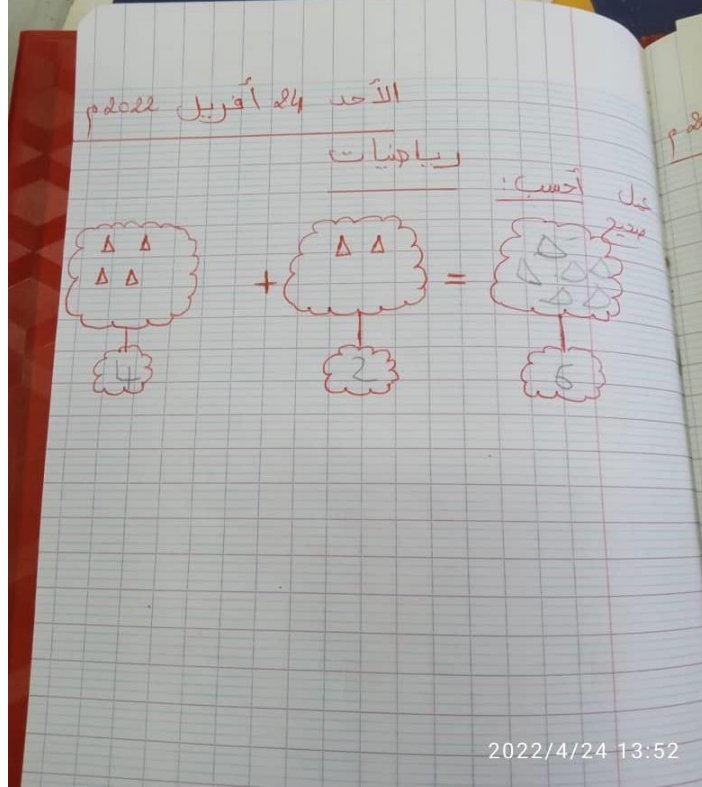 الأحد 24 أفريل 2022م
رياضيات
أحسب:
عمل
صحيح
+ =
4 2 6
2022/4/24 13:52